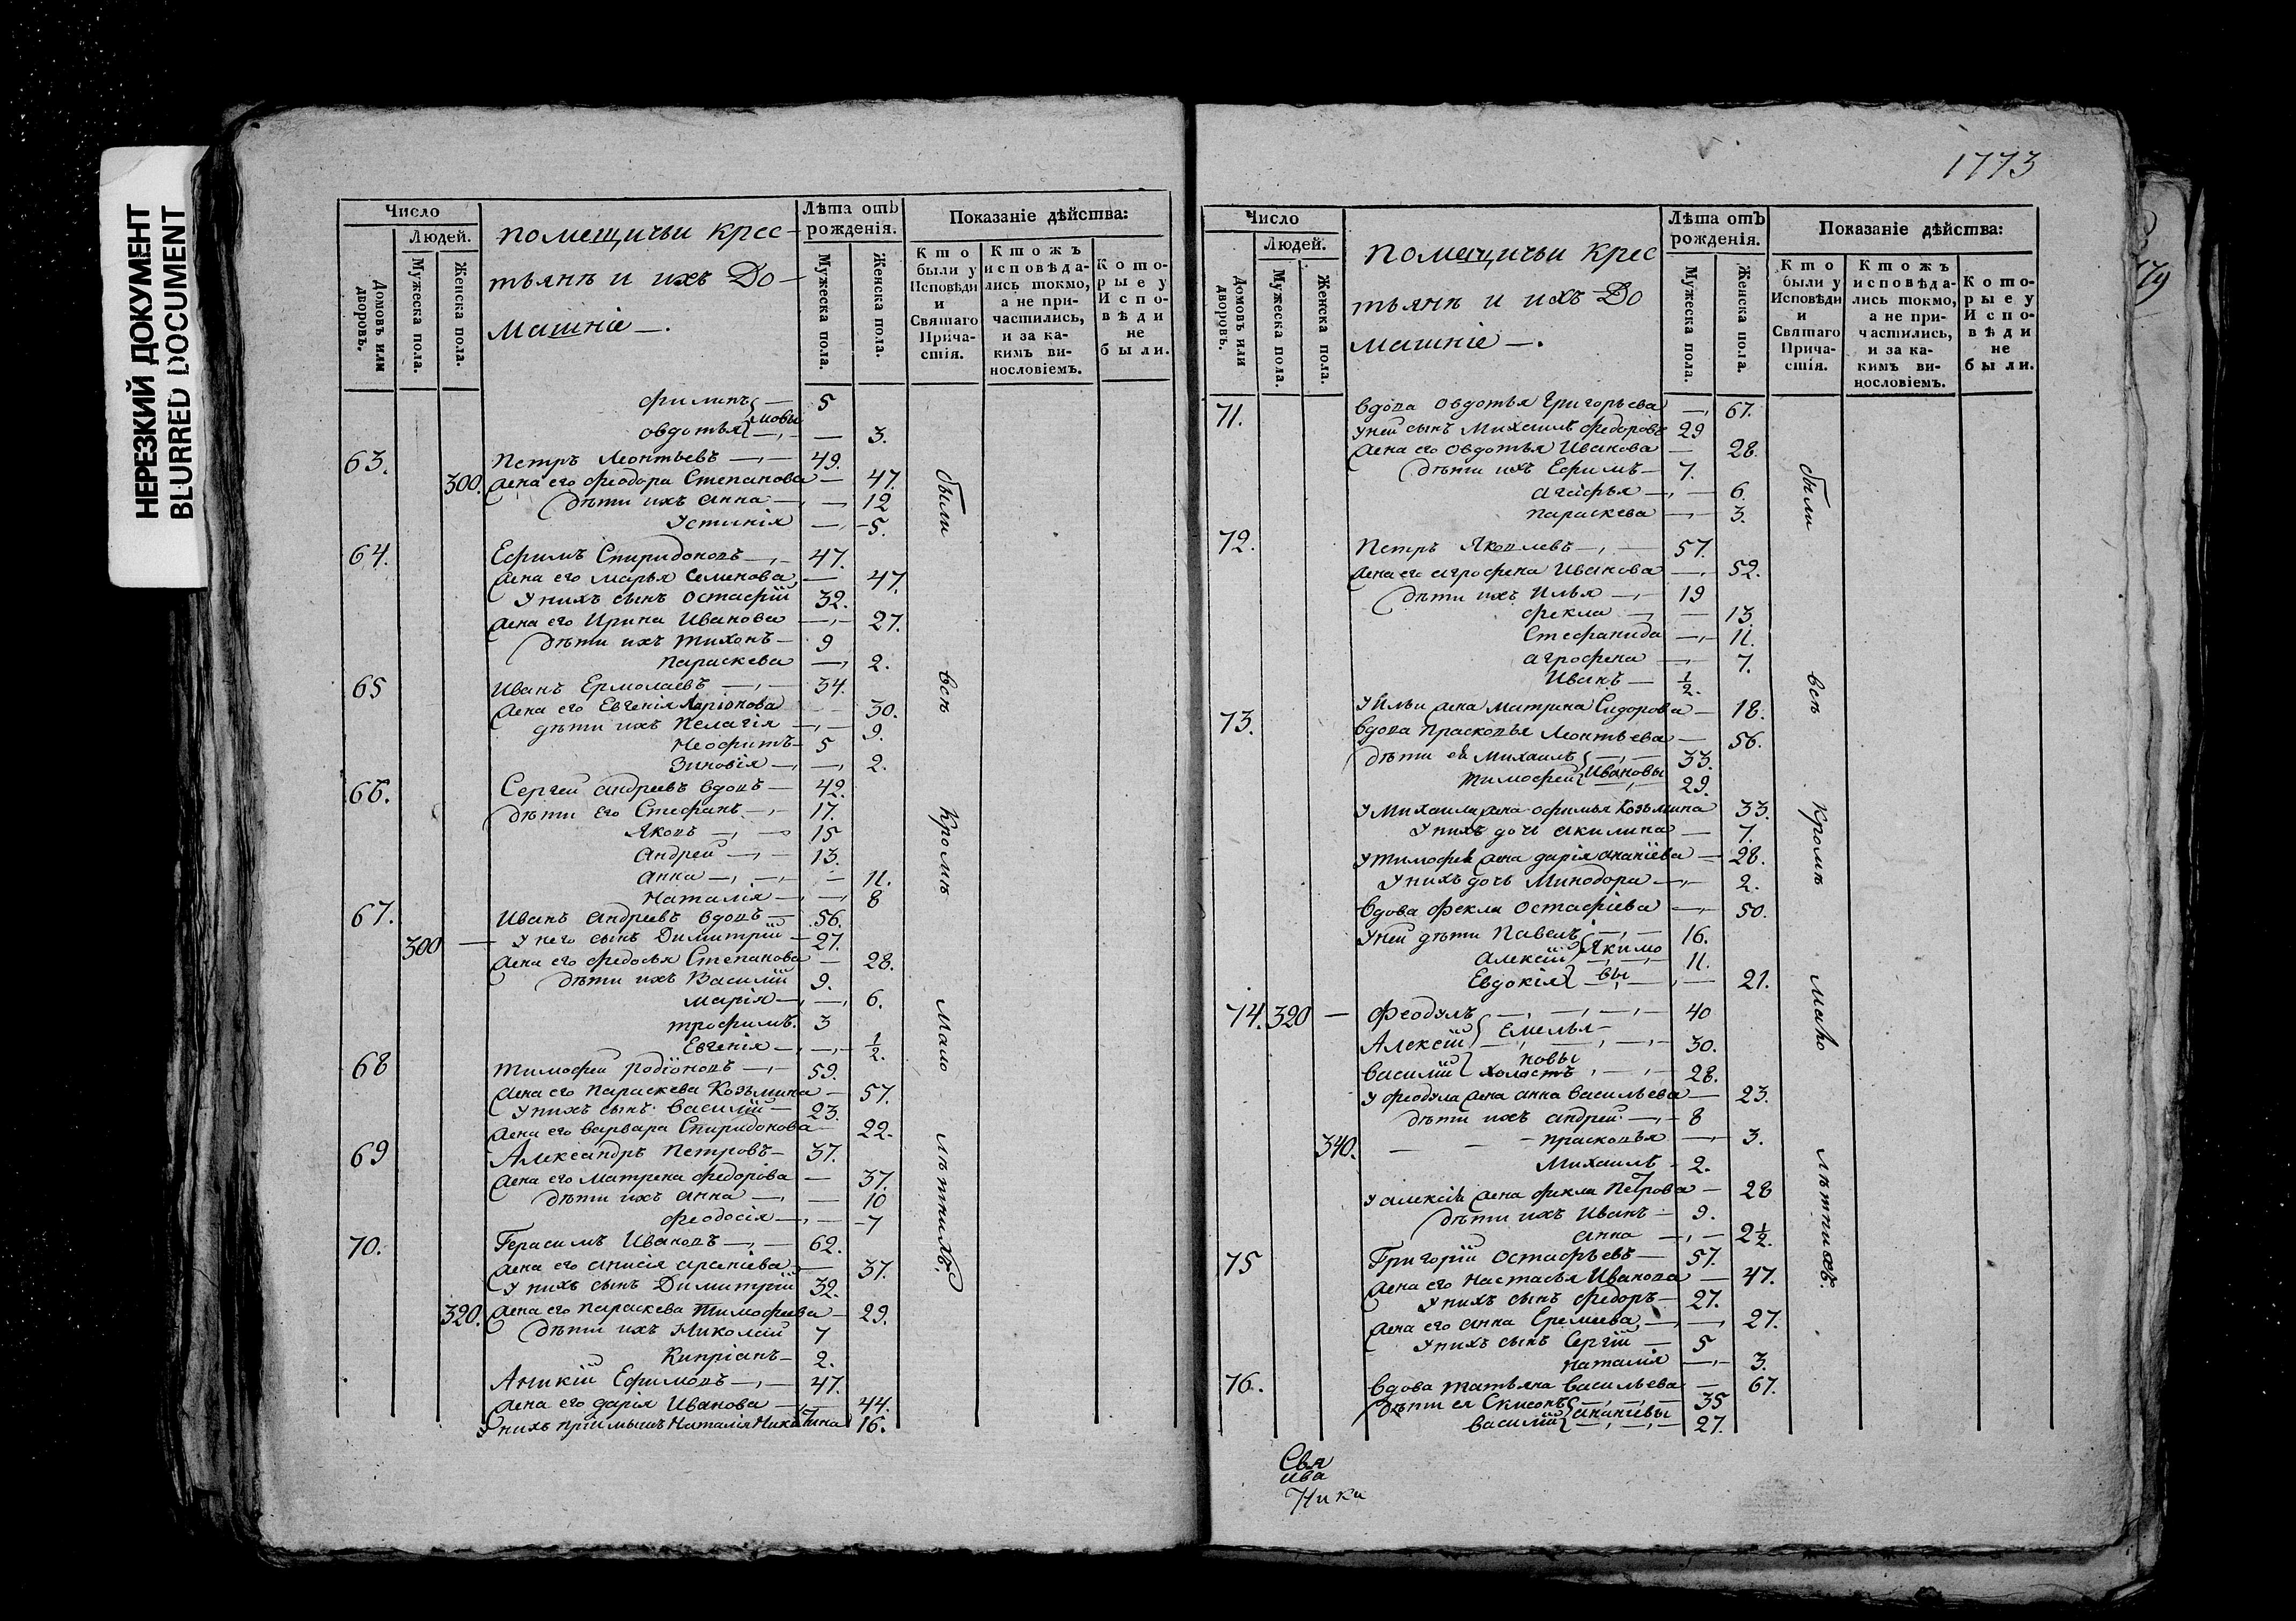 НЕРЕЗКИЙ ДОКУМЕНТ
BLURRED DOCUMENT
Число
Людей.
Домовъ или дворовъ.
Мужеска пола.
Женска пола.
помещичьи крес-
тьянѣ и ихъ До-
машніе —.
Лѣта отъ рожденія.
Мужеска пола.
Женска пола.
Показаніе дѣйства:
Кто были у Исповѣди и Святаго Причастія.
Ктожъ исповѣдались токмо, а не причастились, и за какимъ винословіемъ.
Которые у Исповѣди не были.
Филипъ — 5
мовы
Овдотья — 3.
63. Петръ Леонтьевъ — 49.
300. жена его Феодора Степанова — 47.
дѣти ихъ Анна — 12
Устинія — 5.
64. Ефимъ Спиридоновъ — 47.
жена его Марья Семенова — 47.
У нихъ сынъ Остафій 32.
жена его Ирина Иванова — 27.
дѣти ихъ Тихонъ — 9
Параскева — 2.
65 Иванъ Ермолаевъ — 34.
жена его Евгенія Ларіонова 30.
дѣти ихъ Пелагія — 9.
Неофитъ — 5
Зиновія — 2.
66. Сергей Андреевъ вдовъ — 42.
дѣти его Стефанъ — 17.
Яковъ — 15
Андрей — 13.
Анна — 11.
Наталія — 8
67. Иванъ Андреевъ вдовъ — 56.
300 — У него сынъ Димитрій — 27.
жена его Федосья Степанова — 28.
дѣти ихъ Василій 9.
Марія — 6.
Трофимъ. 3
Евгенія — 1/2.
68 Тимофей Родіоновъ — 59.
жена его Параскева Козьмина — 57.
У нихъ сынъ Василій — 23.
жена его Варвара Спиридонова 22.
69 Александръ Петровъ — 37.
жена его Матрена Федорова — 37.
дѣти ихъ Анна — 10
Феодосія — 7
70. Герасимъ Ивановъ — 62.
жена его Анисія Арсеніева — 37.
У нихъ сынъ Димитрій 32.
320. жена его Параскева Тимофеева — 29.
дѣти ихъ Николай 7
Кипріанъ — 2.
Аникій Ефимовъ — 47.
жена его Дарія Иванова — 44.
У нихъ пріймышъ Наталія Никитина 16.
были
всѣ
Кромѣ
мало
лѣтнихъ
1773
Число
Людей.
Домовъ или дворовъ.
Мужеска пола.
Женска пола.
помещичьи крес
тьянѣ и ихъ До
машніе —.
Лѣта отъ рожденія.
Мужеска пола.
Женска пола.
Показаніе дѣйства:
Кто были у Исповѣди и Святаго Причастія.
Ктожъ исповѣдались токмо, а не причастились, и за какимъ винословіемъ.
Которые у Исповѣди не были.
71. Вдова Овдотья Григорьева — 67.
У ней сынъ Михаилъ Федоровъ 29
жена его Овдотья Иванова — 28.
дѣти ихъ Ефимъ — 7.
Агафья — 6.
Параскева — 3.
72. Петръ Яковлевъ — 57.
жена его Агрофена Иванова — 52.
дѣти ихъ Илья — 19
Фекла — 13.
Стефанида — 11.
Агрофена — 7.
Иванъ — 1/2.
У Ильи жена Матрина Сидорова — 18.
73. Вдова Прасковья Леонтьева — 56.
дѣти ей Михаилъ — 33.
Ивановы
Тимофей 29.
У Михаила жена Офимья Козьмина 33.
У нихъ дочь Акилина — 7.
У Тимофея жена Дарія Ананіева — 28.
У нихъ дочь Минодора — 2.
Вдова Фекла Остафіева — 50.
У ней дѣти Павелъ — 16.
Якимо
Алексій — 11.
вы
Евдокія — 21.
74. 320 — Феодулъ — 40
Емелья-
Алексій — 30.
новы
Василій холостъ — 28.
У Феодула жена Анна Васильева — 23.
дѣти ихъ Андрей — 8
340. Прасковья — 3.
Михаилъ — 2.
У Алексія жена Фекла Петрова — 28
дѣти ихъ Иванъ — 9.
Анна — 2 1/2.
75 Григорій Остафьевъ — 57.
жена его Настасья Иванова — 47.
У нихъ сынъ Федоръ — 27.
жена его Анна Еремеева — 27.
У нихъ сынъ Сергій — 5
Наталія — 3.
76. Вдова Татьяна Васильева — 67.
дѣти ея Симеонъ — 35
Ананіевы
Василій — 27.
были
всѣ
Кромѣ
мало
лѣтнихъ.
Свя
ива
Ника
179